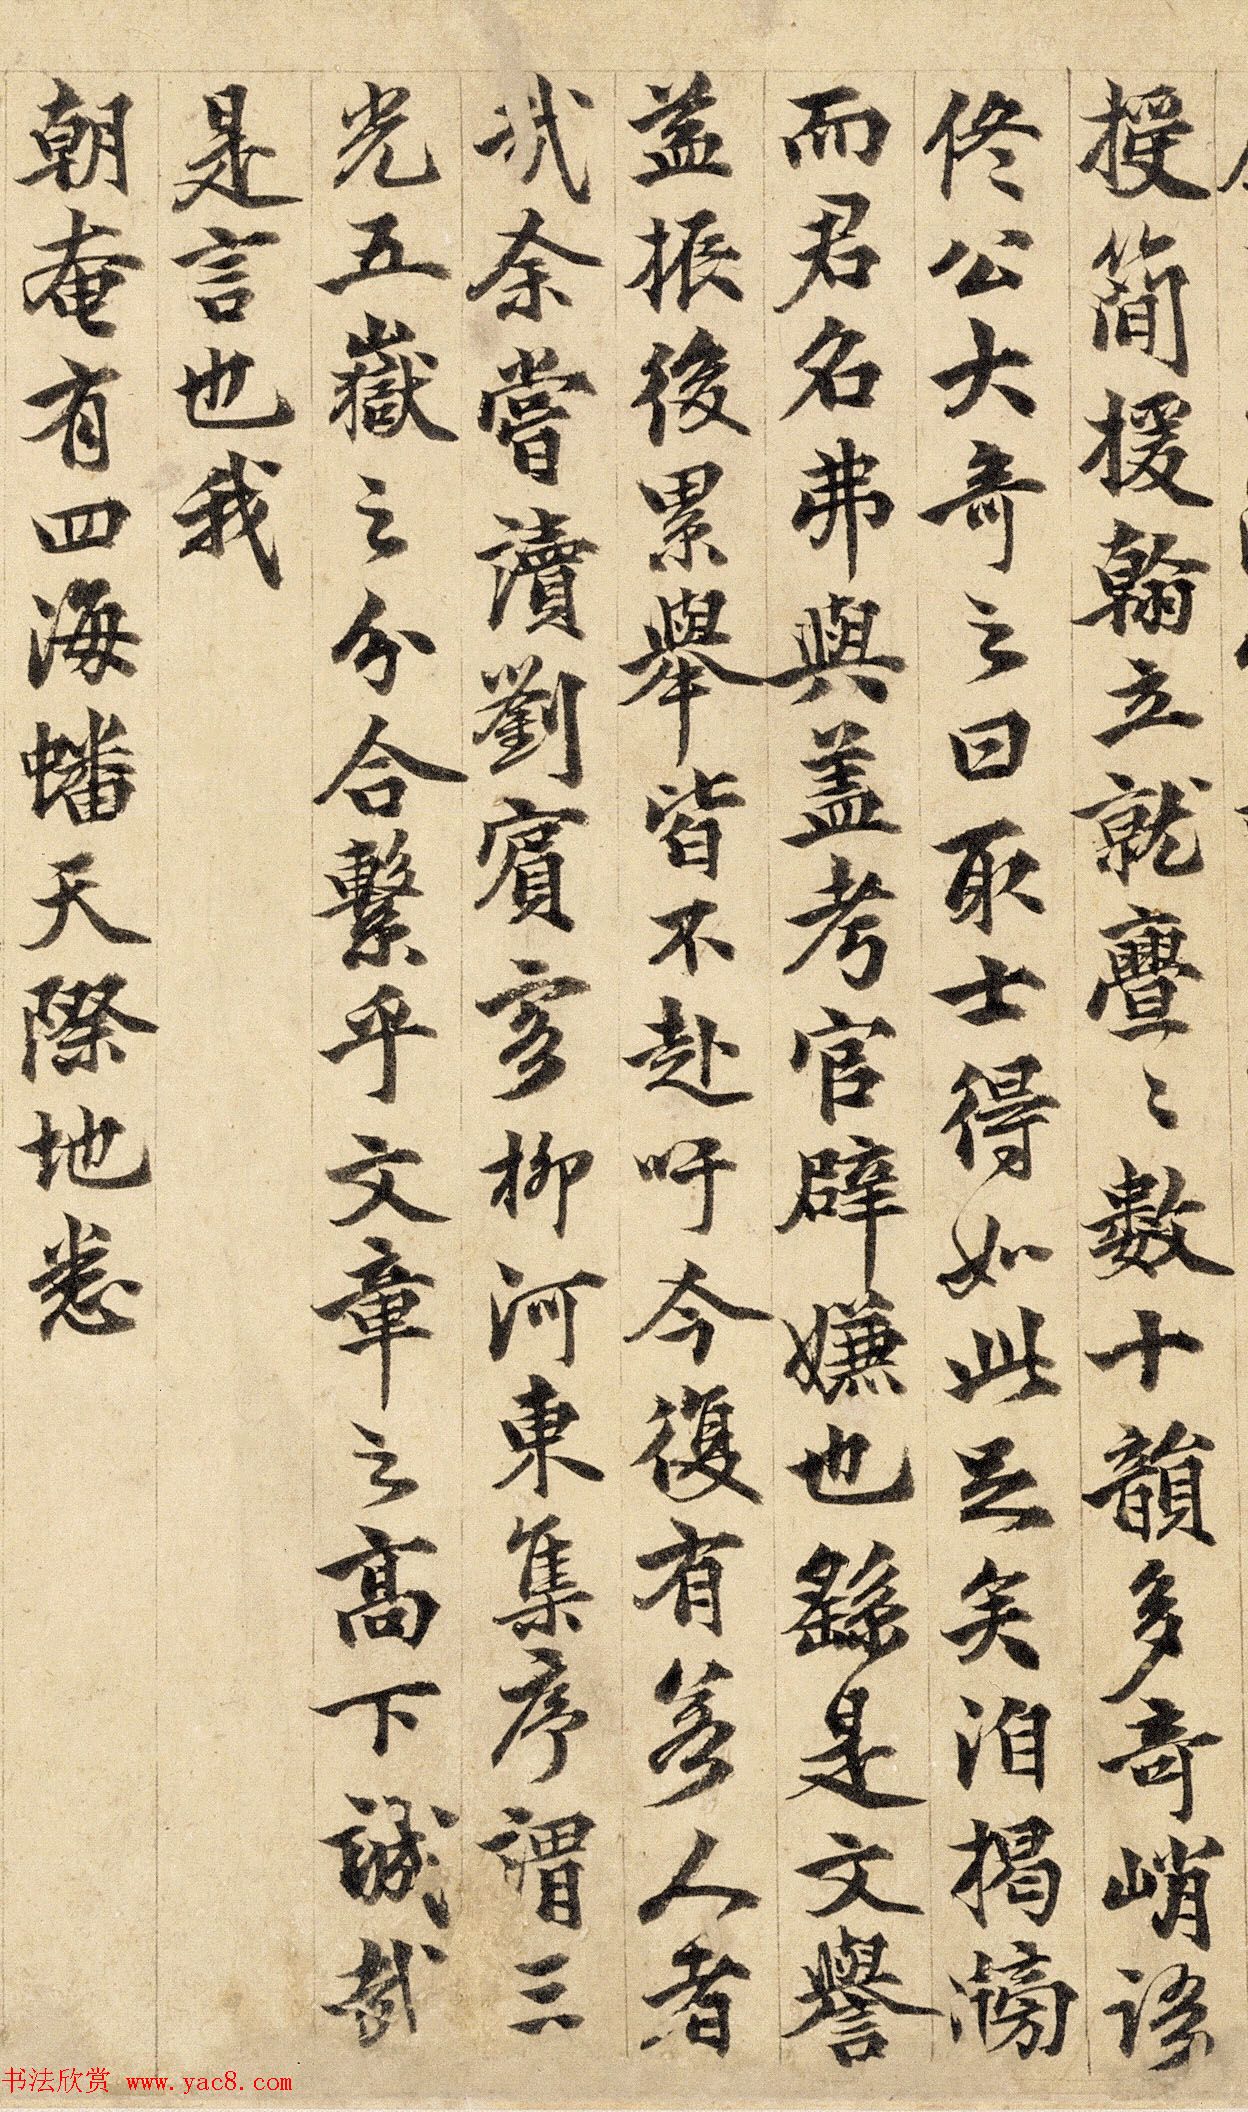 授簡援翰立就亹〻數十韻多奇峭語
佟公大奇之曰取士得如此足矣洎揭牓
而君名弗與蓋考官辟嫌也繇是文譽
益振後累舉皆不赴吁今復有若人者
哉余嘗讀劉賓客柳河東集序謂三
光五嶽之分合繫乎文章之高下誠哉
是言也我
朝奄有四海蟠天際地悉
书法欣赏 www.yac8.com